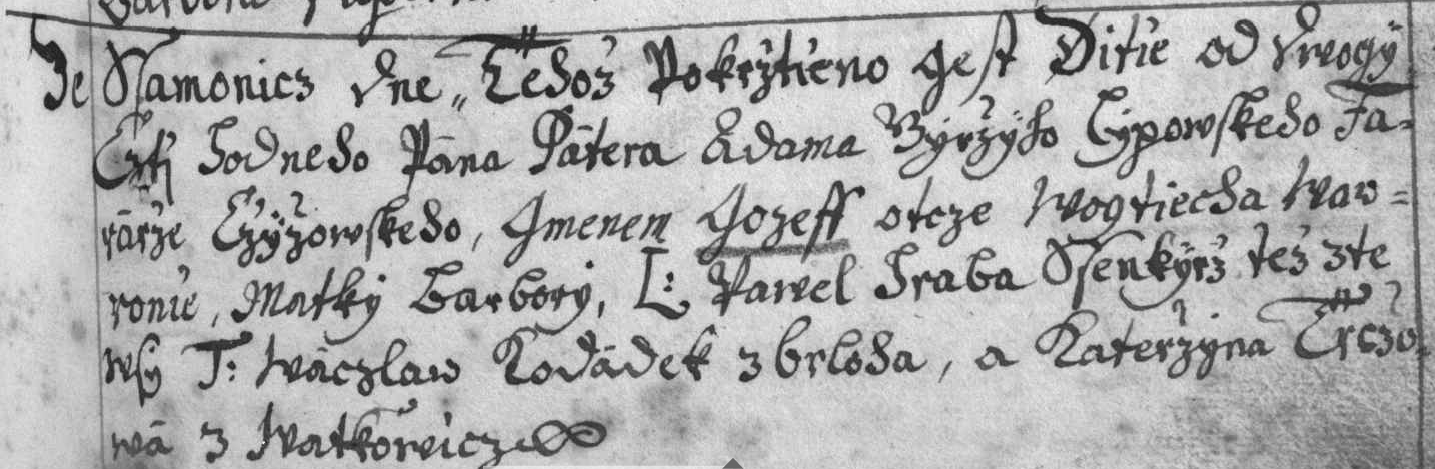 Ze Slamonicz dne „ Tehoż Pokrżtieno gest Ditie od Dwogy
Czti hodneho Pána Pátera Adama Cypowskeho Fa=
rárże Czyżowskeho, Gmenem Gozeff otcze Wogtiecha Waw=
ronie, Matky Barbory, L: Pawel Hraba Ssenkyrż też zte
wsy T: Wáczlaw Kodádek z brloha, a Katerżyna
wá z Watkowicz